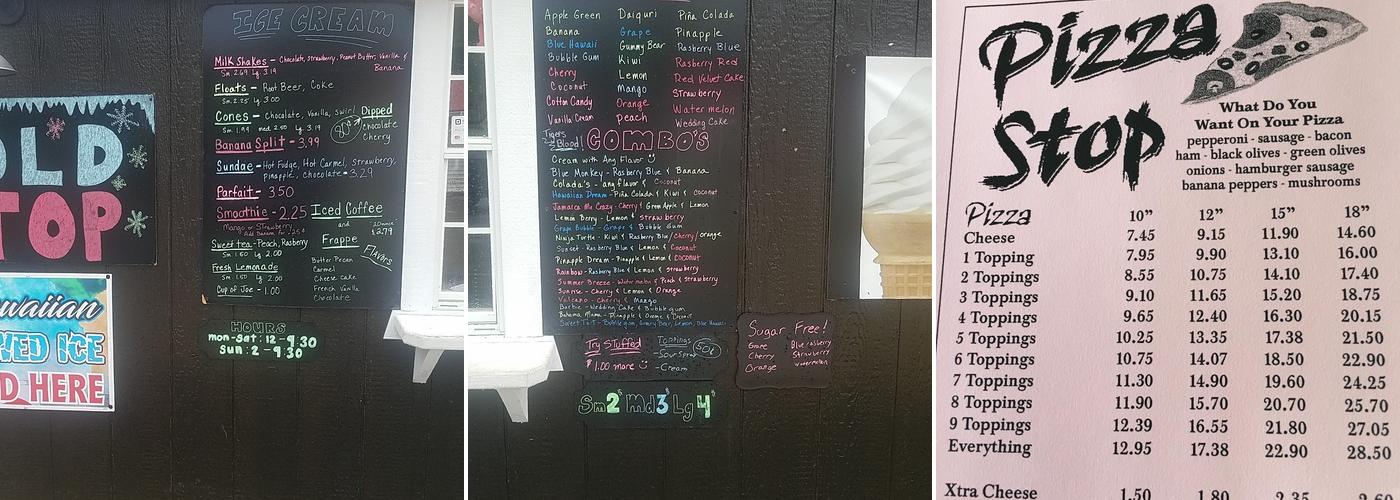 ICE CREAM
Milk Shakes - Chocolate, Strawberry, Peanut Butter, Vanilla &
Banana
Sm 2.69 Lg. 3.19
Floats - Root Beer, Coke
Sm. 2.25 Lg. 3.00
Cones - Chocolate, Vanilla, Swirl
Sm 1.99 med 2.50 Lg. 3.19
Dipped
Chocolate
Cherry
Banana Split - 3.99
Sundae - Hot Fudge, Hot Carmel, Strawberry,
pineapple, chocolate - 3.29
Parfait - 3.50
Smoothie - 2.25
Mango or Strawberry
Iced Coffee
and
Frappe
$2.79
Flavors
Butter Pecan
Carmel
Cheese cake
French Vanilla
Chocolate
Sweet tea - Peach, Rasberry
Sm 1.50 Lg 2.00
Fresh Lemonade
Sm 1.50 Lg 2.00
Cup of Joe - 1.00
HOURS
mon-sat: 12-9:30
Sun: 2-9:30
OLD
TOP
waiian
VED ICE
D HERE
Apple Green Daiquri Piña Colada
Banana Grape Pinapple
Blue Hawaii Gummy Bear Rasberry Blue
Bubble Gum Kiwi Rasberry Red
Cherry Lemon Red Velvet Cake
Coconut Mango Strawberry
Cotton Candy Orange Watermelon
Vanilla Cream peach Wedding Cake
Tigers
Blood!
COMBO'S
Cream with Any Flavor
Blue Monkey - Rasberry Blue & Banana
Colada's - any flavor & Coconut
Hawaiian Dream - Piña Colada & Kiwi & coconut
Jamaica Me Crazy - Cherry & Green Apple & Lemon
Lemon Berry - Lemon & Strawberry
Grape Bubble - Grape & Bubble Gum
Ninja Turtle - Kiwi & Rasberry Blue/Cherry/orange
Sunset - Rasberry Blue & Lemon & Coconut
Pineapple Dream - Pineapple & Lemon & coconut
Rainbow - Rasberry Blue & Lemon & Strawberry
Summer Breeze - Watermelon & Peach & Strawberry
Sunrise - Cherry & Lemon & Orange
Volcano - Cherry & Mango
Barbie - Wedding Cake & Bubblegum
Bahama Mama - Pineapple & Orange & Coconut
Sweet Tart - Bubble gum, Gummy Bear, Lemon, Blue Hawaii
Try Stuffed
$1.00 more
Toppings
50¢
-Sour Spray
-Cream
Sugar Free!
Grape Blue rasberry
Cherry Strawberry
Orange Watermelon
Sm 2 Md 3 Lg 4
Pizza
Stop
What Do You
Want On Your Pizza
pepperoni - sausage - bacon
ham - black olives - green olives
onions - hamburger sausage
banana peppers - mushrooms
Pizza 10” 12” 15” 18”
Cheese 7.45 9.15 11.90 14.60
1 Topping 7.95 9.90 13.10 16.00
2 Toppings 8.55 10.75 14.10 17.40
3 Toppings 9.10 11.65 15.20 18.75
4 Toppings 9.65 12.40 16.30 20.15
5 Toppings 10.25 13.35 17.38 21.50
6 Toppings 10.75 14.07 18.50 22.90
7 Toppings 11.30 14.90 19.60 24.25
8 Toppings 11.90 15.70 20.70 25.70
9 Toppings 12.39 16.55 21.80 27.05
Everything 12.95 17.38 22.90 28.50
Xtra Cheese 1.50 1.80 2.35